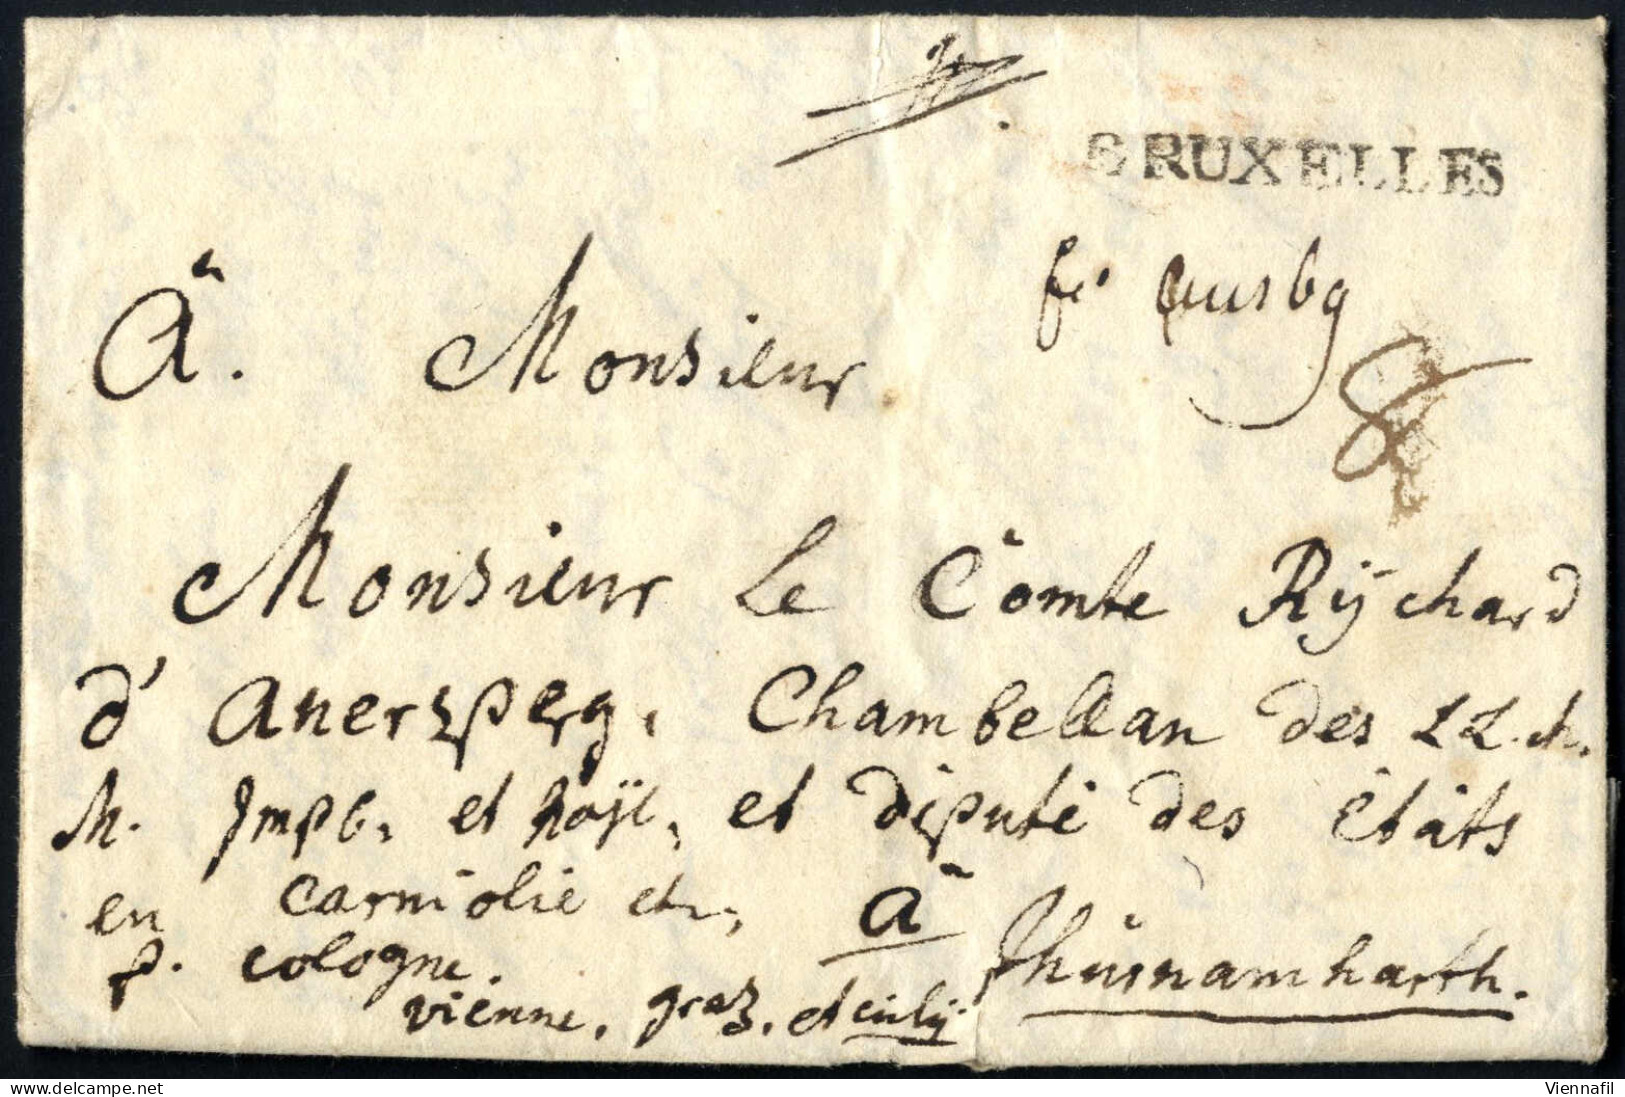 BRUXELLES
fco Ausbg
8
A. Monsieur
Monsieur Le Comte Rÿchard
d'Auersperg, Chambellan des LL. M.
M. Impb, et Royl, et diputé des états
en Carniolie etc, A Thurnamharth.
p. cologne.
vienne, graz, et cilly.
Viennafil